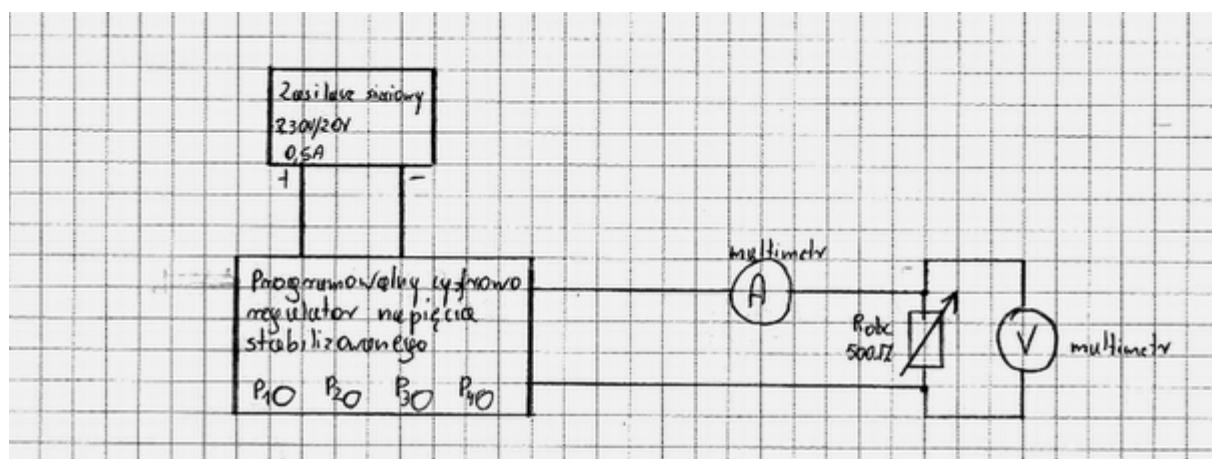 Zasilacz sieciowy
230V/20V
0,5A
+ -
Programowalny cyfrowo
regulator napięcia
stabilizowanego
P1 P2 P3 P4
multimetr
A
Robc
500Ω
V
multimetr